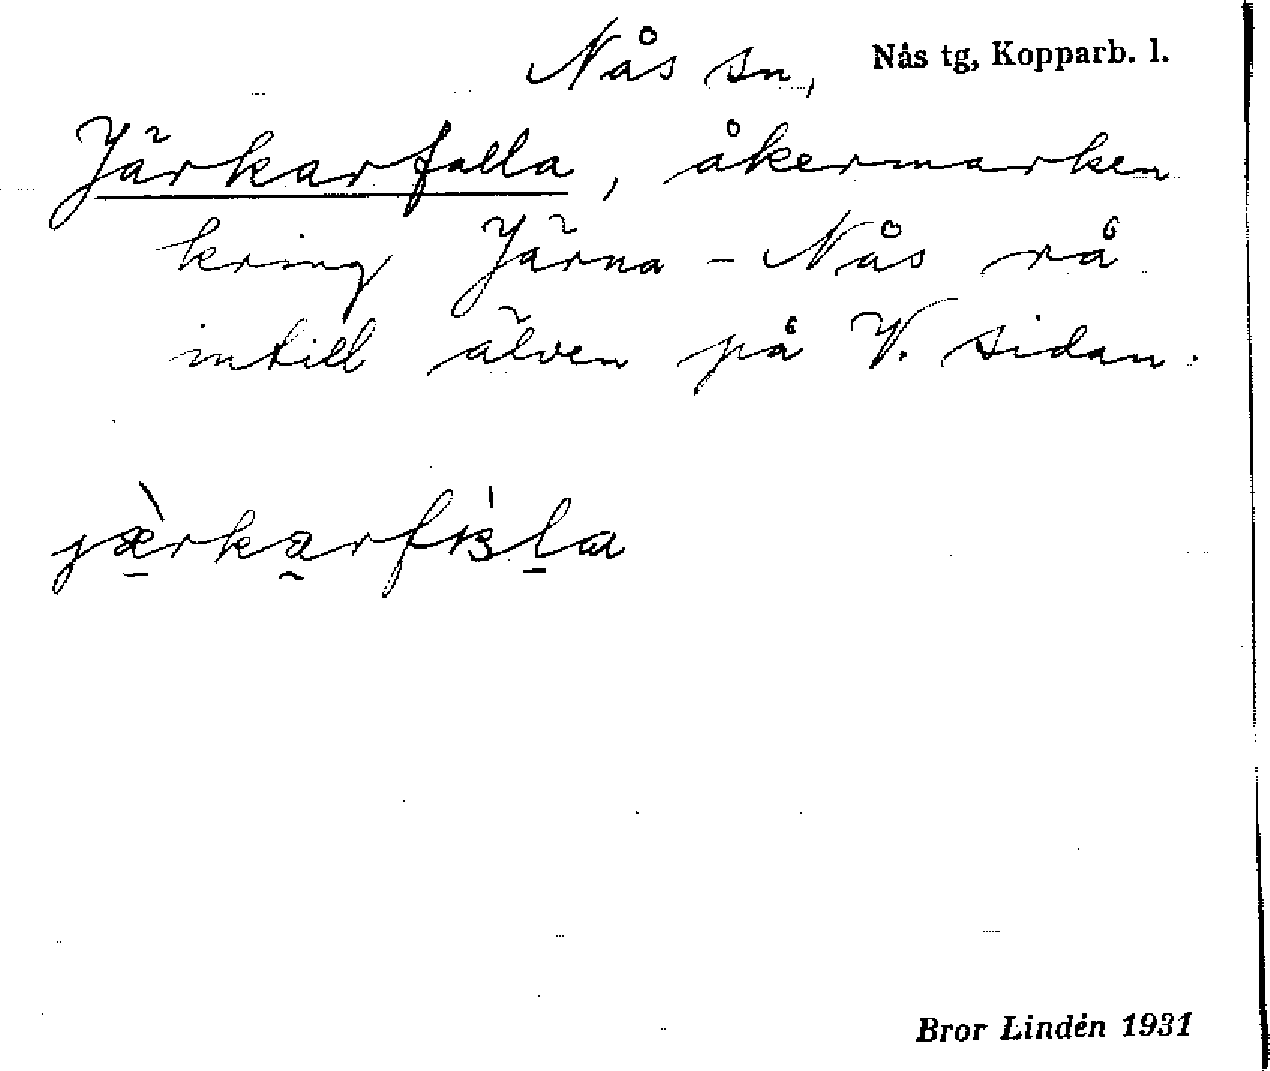 Nås sn, Nås tg, Kopparb. l.
Järkarfalla, åkermarken
kring Järna - Nås rå
intill älven på V. sidan.
Bror Lindén 1931